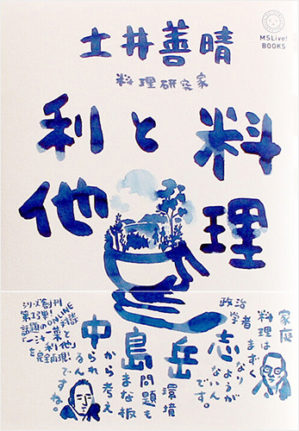 MSLive!
BOOKS
土井善晴
料理研究家
料理
と
利他
家庭
料理は
まず
なりようが
ないんです。
政治
学者
中島岳志
環境
問題も
まな板
から考え
られる
んですね。
シリーズ創刊
第1弾!
話題のONLINE
対談
「一汁一菜」
を完全再現!